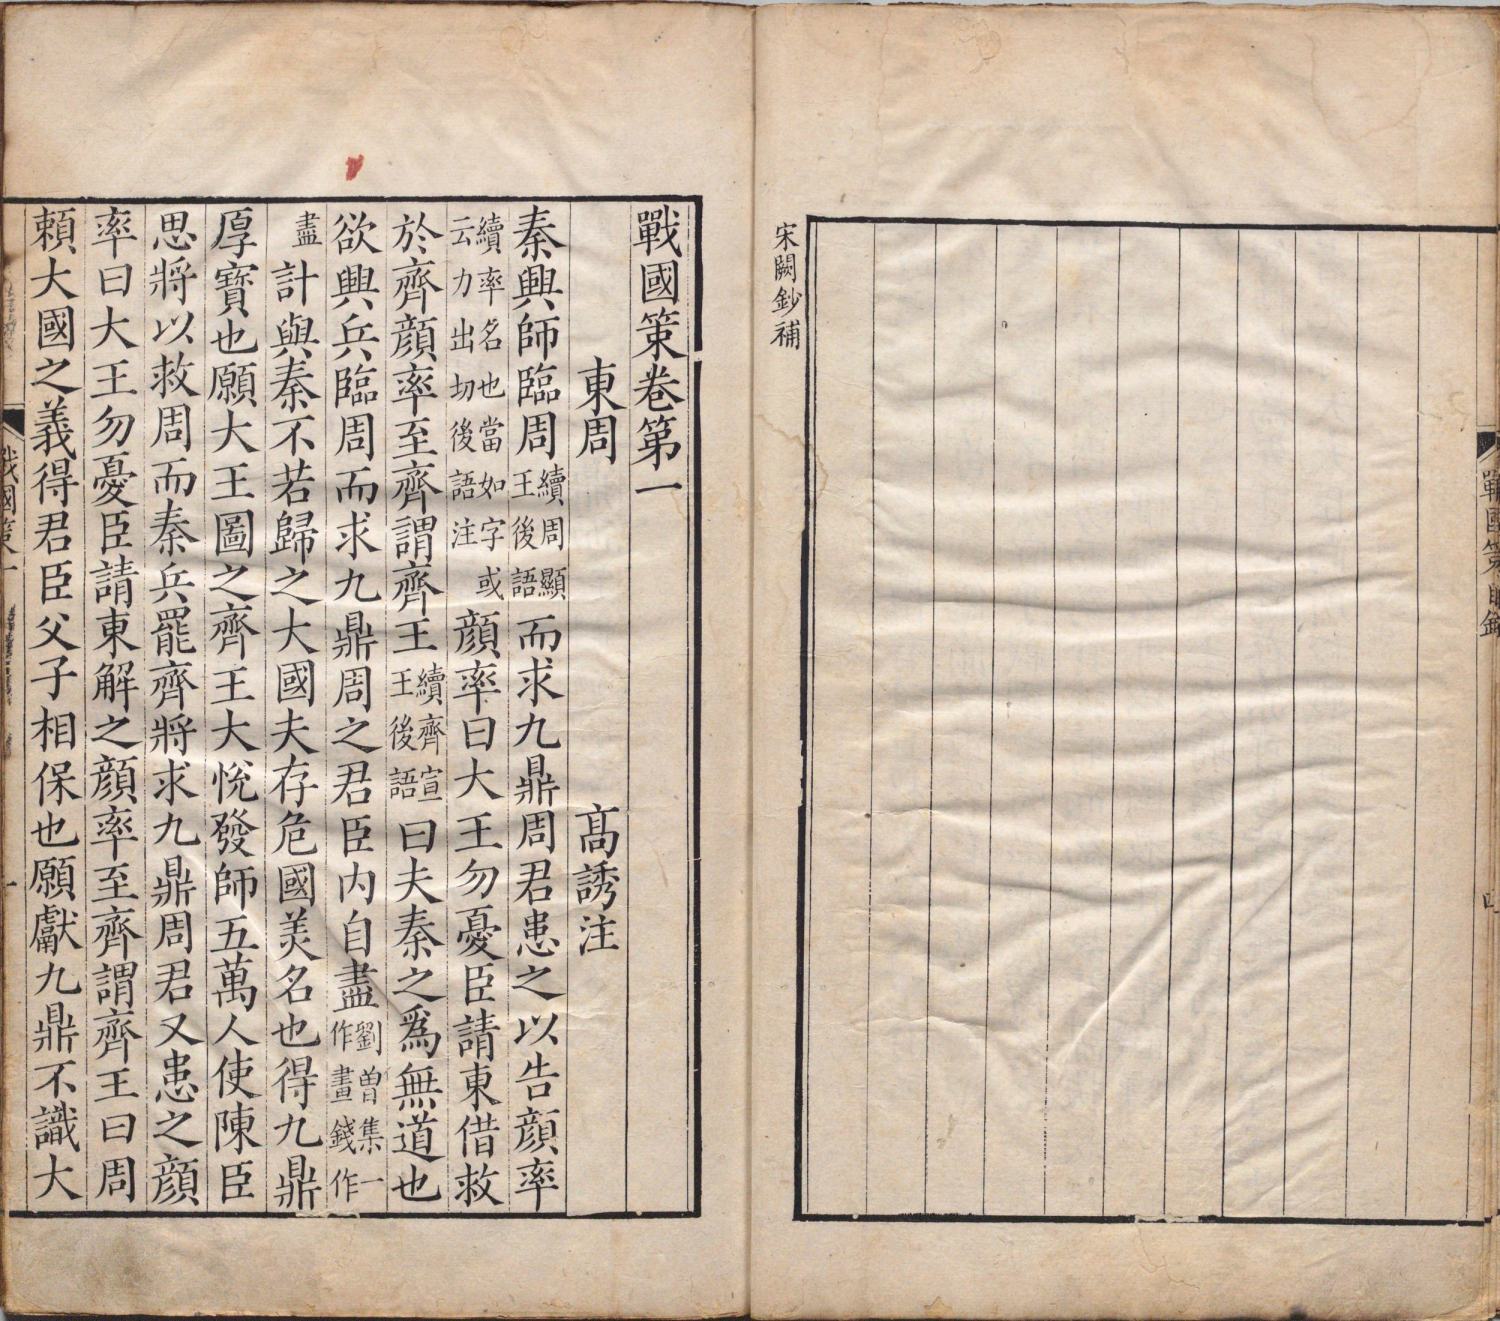 宋闕鈔補
戰國策目錄
戰國策卷第一
東周 高誘注
秦興師臨周續周顯王後語而求九鼎周君患之以告顏率
續率名也當如字或云力出切後語注顏率曰大王勿憂臣請東借救
於齊顏率至齊謂齊王續齊宣王後語曰夫秦之爲無道也
欲興兵臨周而求九鼎周之君臣内自盡劉曾集一作畫錢作
盡計與秦不若歸之大國夫存危國美名也得九鼎
厚寶也願大王圖之齊王大悅發師五萬人使陳臣
思將以救周而秦兵罷齊將求九鼎周君又患之顏
率曰大王勿憂臣請東解之顏率至齊謂齊王曰周
賴大國之義得君臣父子相保也願獻九鼎不識大
戰國策一
一